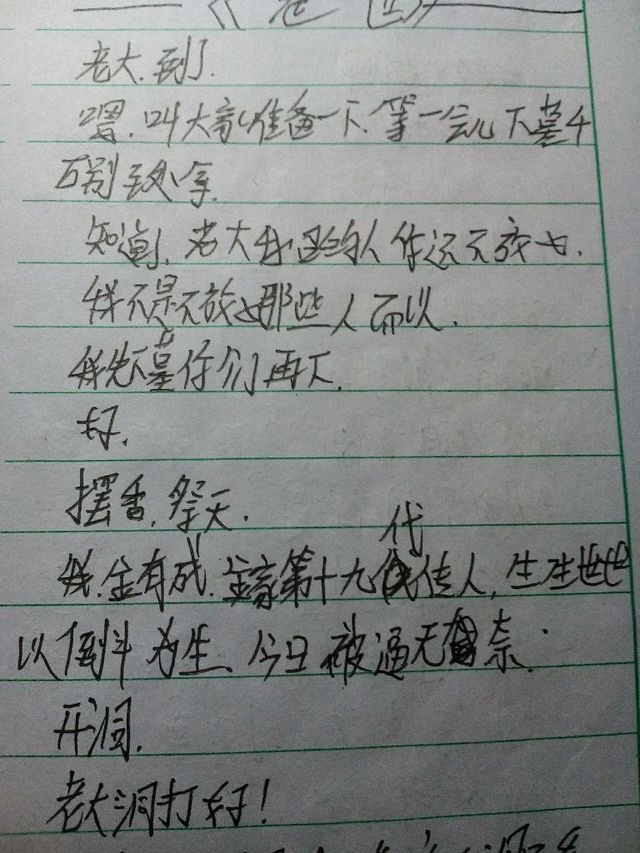 老大.到了.
嗯.叫大家准备一下.等一会儿下墓千
万别到处拿.
知道,老大我 的人你还不放心.
我不是不放心那些人而以.
我先下墓你们再下.
好.
摆香,祭天.
代
我.金有成.金家第十九代传人,生生世世
以倒斗为生、今日被逼无奈.
开洞.
老大洞打好!